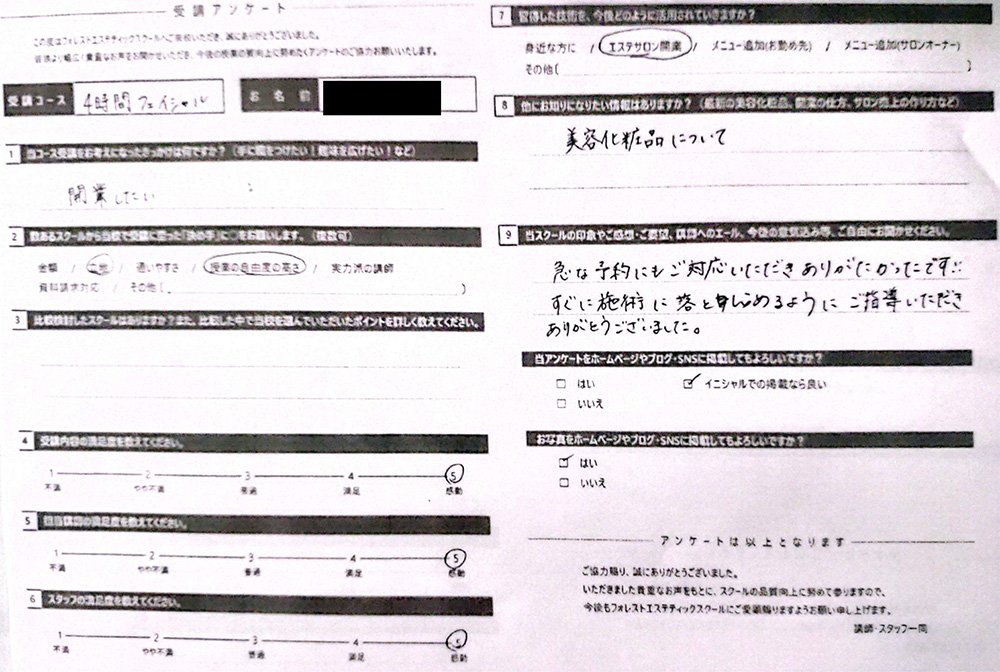 受講アンケート
この度はフォレストエステティックスクールへご来校いただき、誠にありがとうございました。
皆様より幅広く貴重なお声をお聞かせいただき、今後の授業の質向上に努めたくアンケートのご協力お願いいたします。
受講コース 4時間フェイシャル
お名前
1 当コース受講をお考えになったきっかけは何ですか？（手に職をつけたい！趣味を広げたい！など）
開業したい
2 数あるスクールから当校で受講に至った「決め手」に○をお願いします。（複数可）
金額 / 立地 / 通いやすさ / 授業の自由度の高さ / 実力派の講師
資料請求対応 / その他( )
3 比較検討したスクールはありますか？また、比較した中で当校を選んでいただいたポイントを詳しく教えてください。
4 受講内容の満足度を教えてください。
1 2 3 4 5
不満 やや不満 普通 満足 感動
5 担当講師の満足度を教えてください。
1 2 3 4 5
不満 やや不満 普通 満足 感動
6 スタッフの満足度を教えてください。
1 2 3 4 5
不満 やや不満 普通 満足 感動
7 習得した技術を、今後どのように活用されていきますか？
身近な方に / エステサロン開業 / メニュー追加(お勤め先) / メニュー追加(サロンオーナー)
その他( )
8 他にお知りになりたい情報はありますか？（最新の美容化粧品、開業の仕方、サロン売上の作り方など）
美容化粧品について
9 当スクールの印象やご感想・ご要望、講師へのエール、今後の意気込み等、ご自由にお聞かせください。
急な予約にもご対応いただきありがたかったです!!
すぐに施術に落とし込めるようにご指導いただき
ありがとうございました。
当アンケートをホームページやブログ・SNSに掲載してもよろしいですか？
□ はい ☑ イニシャルでの掲載なら良い
□ いいえ
お写真をホームページやブログ・SNSに掲載してもよろしいですか？
☑ はい
□ いいえ
アンケートは以上となります
ご協力賜り、誠にありがとうございました。
いただきました貴重なお声をもとに、スクールの品質向上に努めて参りますので、
今後もフォレストエステティックスクールにご愛顧賜りますようお願い申し上げます。
講師・スタッフ一同